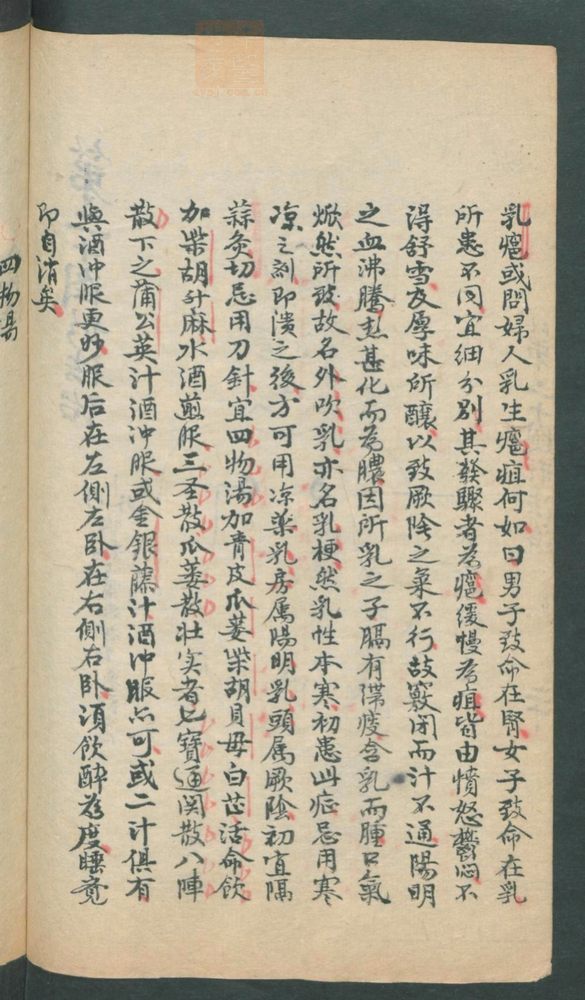 乳癰或問婦人乳生癰疽何如曰男子致命在腎女子致命在乳
所患不同宜細分別其發驟者為癰緩慢為疽皆由憤怒鬱悶不
得舒雪及厚味所釀以致厥陰之氣不行故竅閉而汁不通陽明
之血沸騰热甚化而為膿因所乳之子膈有滯痰含乳而腫口氣
焮然所致故名外吹乳亦名乳梗然乳性本寒初患此症忌用寒
凉之剂即潰之後方可用凉藥乳房属陽明乳頭属厥陰初宜隔
蒜灸切忌用刀針宜四物湯加青皮瓜蒌柴胡貝毋白芷活命飲
加柴胡升麻水酒煎服三圣散瓜蒌散壮实者七寶通関散八陣
散下之蒲公英汁酒冲服或金銀藤汁酒冲服亦可或二汁俱有
與酒冲服更妙服后在左側左卧在右側右卧須飲醉為度睡竟
即自消矣
四物易